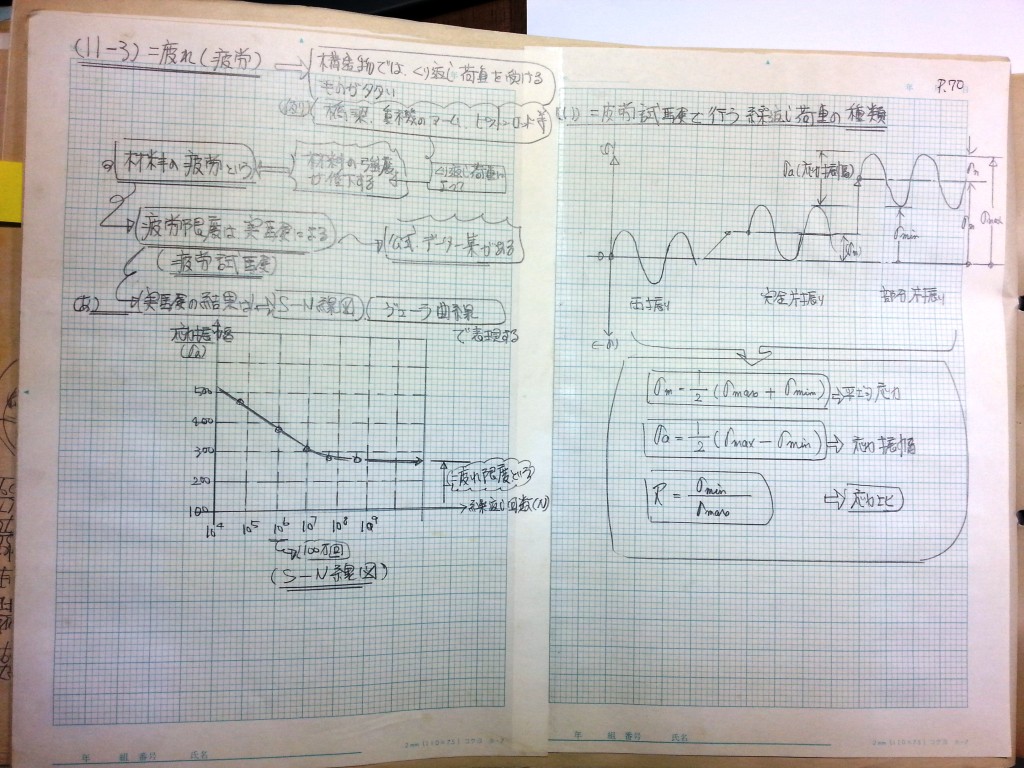 (11-3) = 疲れ(疲労)
構造物では、くり返し荷重を受ける
ものが多い
(例) 橋梁、重機のアーム、ピストンロッド等
材料の疲労という
材料の強度が
低下する
くり返し荷重に
よって
疲労限度は実験による
公式データー集がある
(疲労試験)
実験の結果は S-N線図 (ヴェーラ曲線)
で表現する
応力振幅
(σa)
500
400
300
200
100
10⁴ 10⁵ 10⁶ 10⁷ 10⁸ 10⁹
疲れ限度という
繰返し回数(N)
100万回
(S-N線図)
年 組 番号 氏名
P.70
(1) = 疲労試験で行う繰返し荷重の種類
σa(応力振幅)
σm
σmin
σmax
両振り
完全片振り
部分片振り
(-σ)
σm = 1/2 (σmax + σmin) → 平均応力
σa = 1/2 (σmax - σmin) → 応力振幅
R = σmin / σmax → 応力比
年 組 番号 氏名